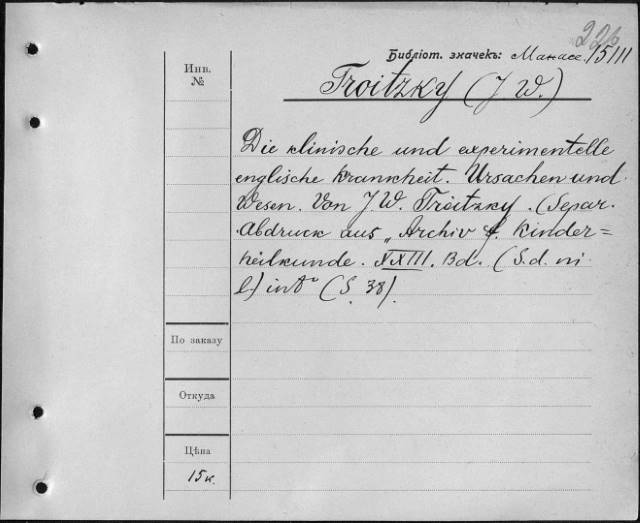 226
Библіот. значекъ: Манасс. 15/III
Инв.
№
Troitzky (J. W.)
Die klinische und experimentelle
englische Krankheit. Ursachen und
Wesen. Von J. W. Troitzky. (Separ.
Abdruck aus „Archiv f. Kinder=
heilkunde. XXIII. Bd. (S. d. ni
l.) in 8° (S. 38).
По заказу
Откуда
Цѣна
15 к.